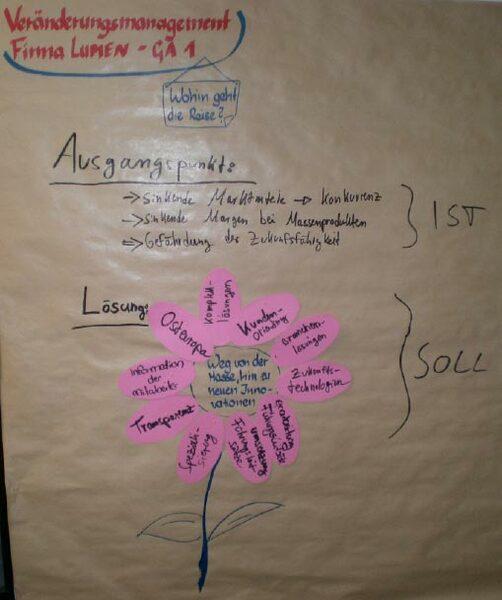 Veränderungsmanagement
Firma LUMEN - GA 1
Wohin geht
die Reise?
Ausgangspunkt:
→ Sinkende Marktanteile → Konkurrenz
→ Sinkende Margen bei Massenprodukten
⇒ Gefährdung der Zukunftsfähigkeit
IST
Lösung:
SOLL
Osteuropa
Komplett-
lösungen
Kunden-
orientierung
Branchen-
lösungen
Zukunfts-
technologien
Führungskräfte
Umsetzung
Führungsleit
sätze
Speziali-
sierung
Transparenz
Information
der
Mitarbeiter
Weg von der
Masse, hin zu
neuen Inno-
vationen